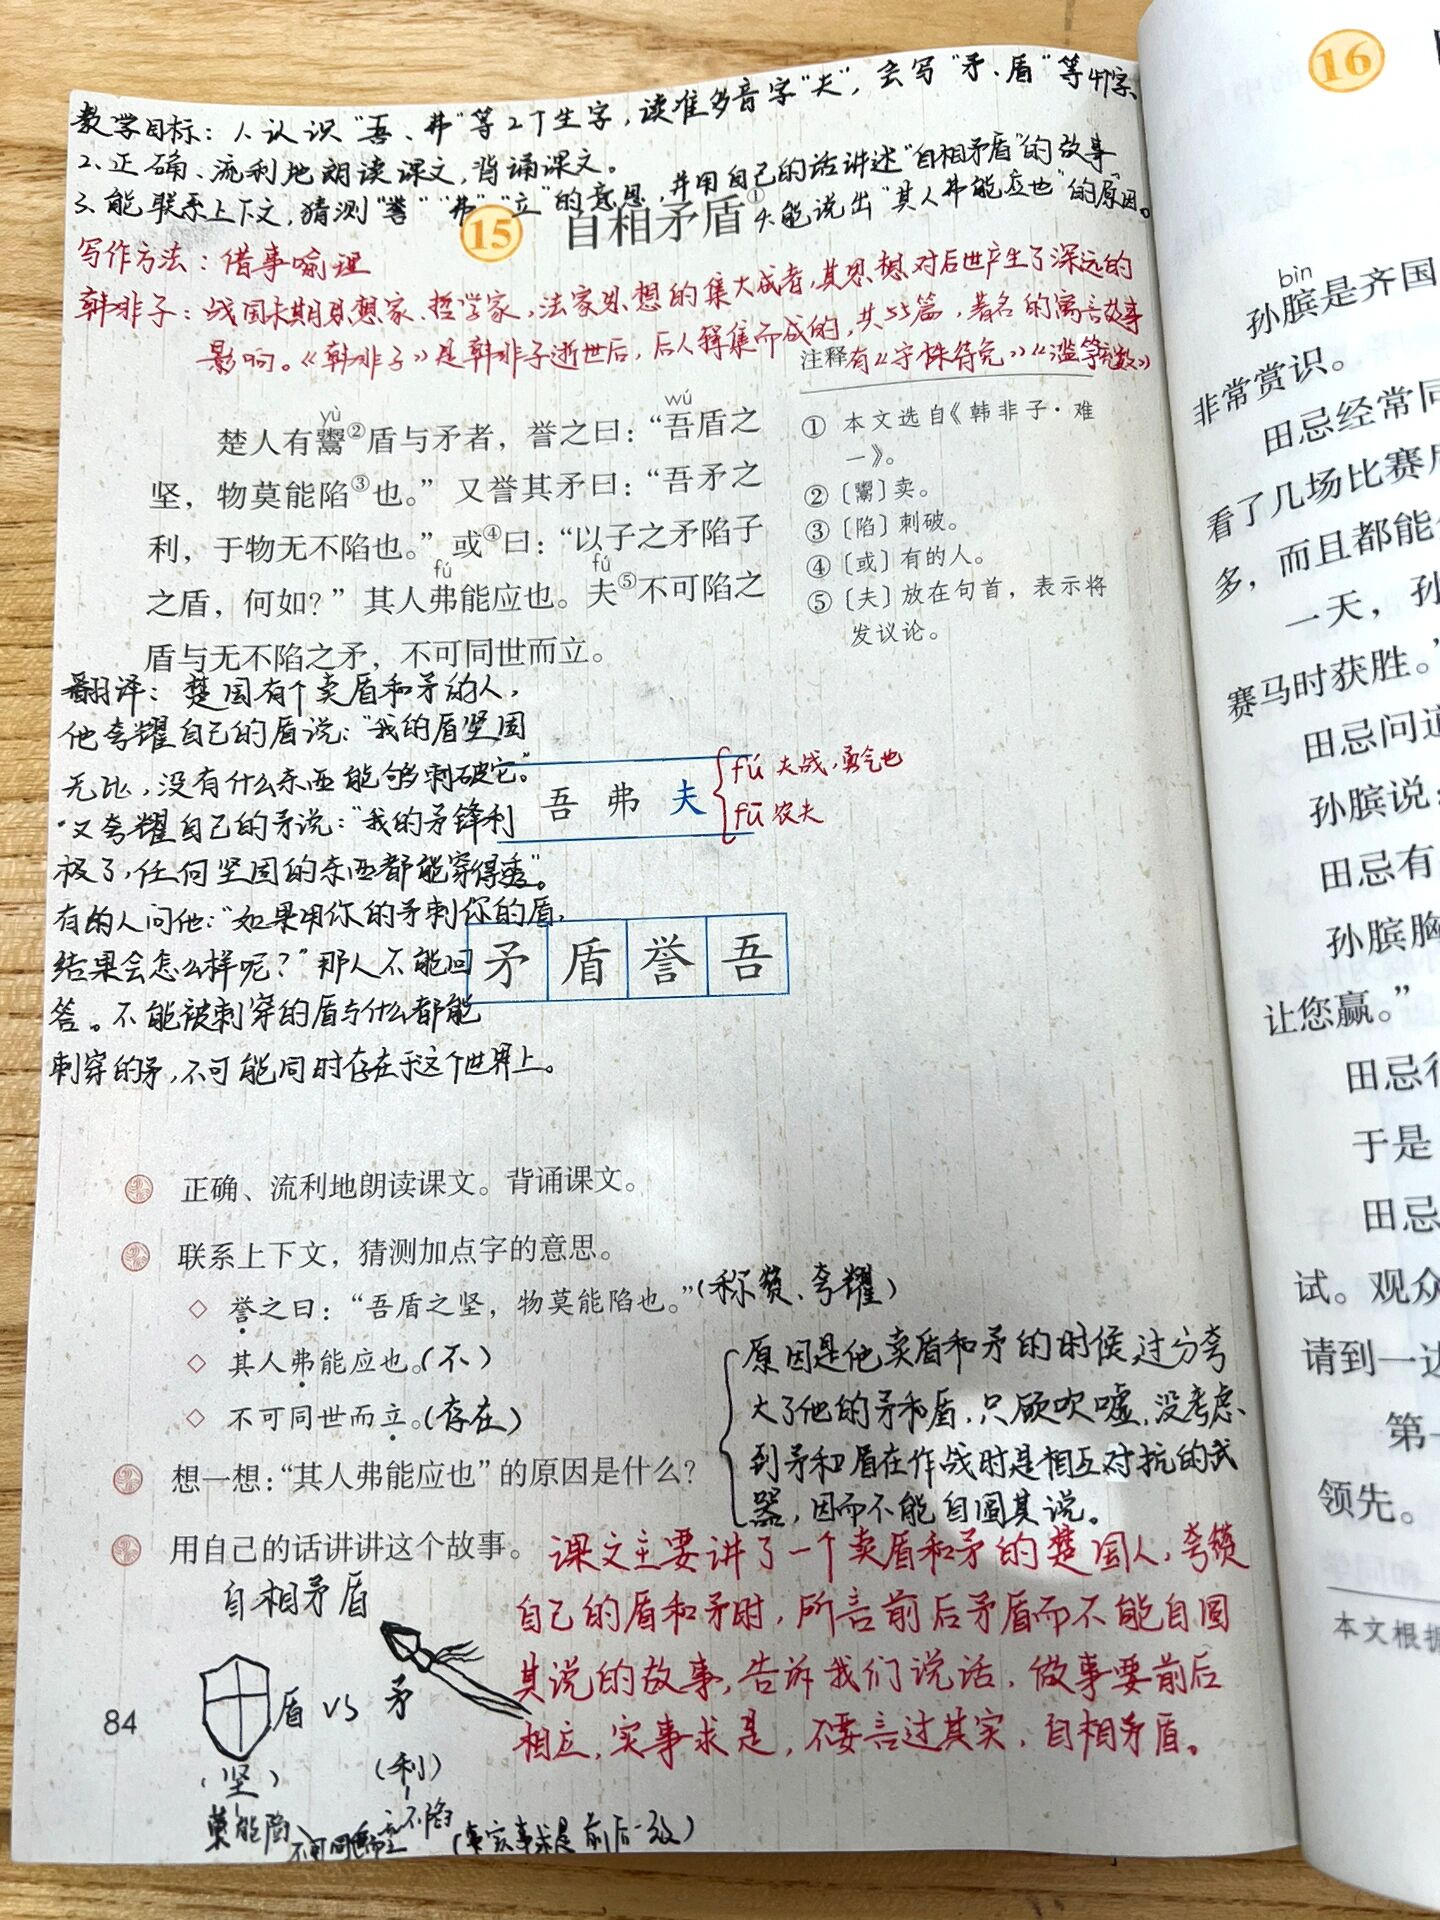 教学目标：1、认识“吾、弗”等2个生字，读准多音字“夫”，会写“矛、盾”等4个字。
2、正确、流利地朗读课文，背诵课文。
3、能联系上下文，猜测“誉”“弗”“立”的意思，并用自己的话讲述“自相矛盾”的故事。
4、能说出“其人弗能应也”的原因。
15 自相矛盾①
写作方法：借事喻理
韩非子：战国末期思想家、哲学家，法家思想的集大成者，其思想对后世产生了深远的
影响。《韩非子》是韩非子逝世后，后人辑集而成的，共55篇，著名的寓言故事
有《守株待兔》《滥竽充数》
yù wú
楚人有鬻②盾与矛者，誉之曰：“吾盾之
坚，物莫能陷③也。”又誉其矛曰：“吾矛之
利，于物无不陷也。”或④曰：“以子之矛陷子
fú fú
之盾，何如？”其人弗能应也。夫⑤不可陷之
盾与无不陷之矛，不可同世而立。
注释
① 本文选自《韩非子·难
一》。
② 〔鬻〕卖。
③ 〔陷〕刺破。
④ 〔或〕有的人。
⑤ 〔夫〕放在句首，表示将
发议论。
翻译：楚国有个卖盾和矛的人，
他夸耀自己的盾说：“我的盾坚固
无比，没有什么东西能够刺破它。”
又夸耀自己的矛说：“我的矛锋利
极了，任何坚固的东西都能穿得透”。
有的人问他：“如果用你的矛刺你的盾，
结果会怎么样呢？”那人不能回
答。不能被刺穿的盾与什么都能
刺穿的矛，不可能同时存在于这个世界上。
吾 弗 夫
fú 夫战，勇气也
fū 农夫
矛 盾 誉 吾
正确、流利地朗读课文。背诵课文。
联系上下文，猜测加点字的意思。
◇ 誉之曰：“吾盾之坚，物莫能陷也。”（称赞、夸耀）
◇ 其人弗能应也。（不）
◇ 不可同世而立。（存在）
想一想：“其人弗能应也”的原因是什么？
原因是他卖盾和矛的时候，过分夸
大了他的矛和盾，只顾吹嘘，没考虑
到矛和盾在作战时是相互对抗的武
器，因而不能自圆其说。
用自己的话讲讲这个故事。
课文主要讲了一个卖盾和矛的楚国人，夸赞
自己的盾和矛时，所言前后矛盾而不能自圆
其说的故事，告诉我们说话，做事要前后
相应，实事求是，不要言过其实，自相矛盾。
自相矛盾
盾 VS 矛
（坚） （利）
莫能陷 不可同世而立 不陷
实事求是 前后一致）
84
16
bìn
孙膑是齐国
非常赏识。
田忌经常同
看了几场比赛后
多，而且都能
一天，孙
赛马时获胜。”
田忌问道
孙膑说：
田忌有
孙膑胸
让您赢。”
田忌
于是
田忌
试。观众
请到一边
第一
领先。
本文根据